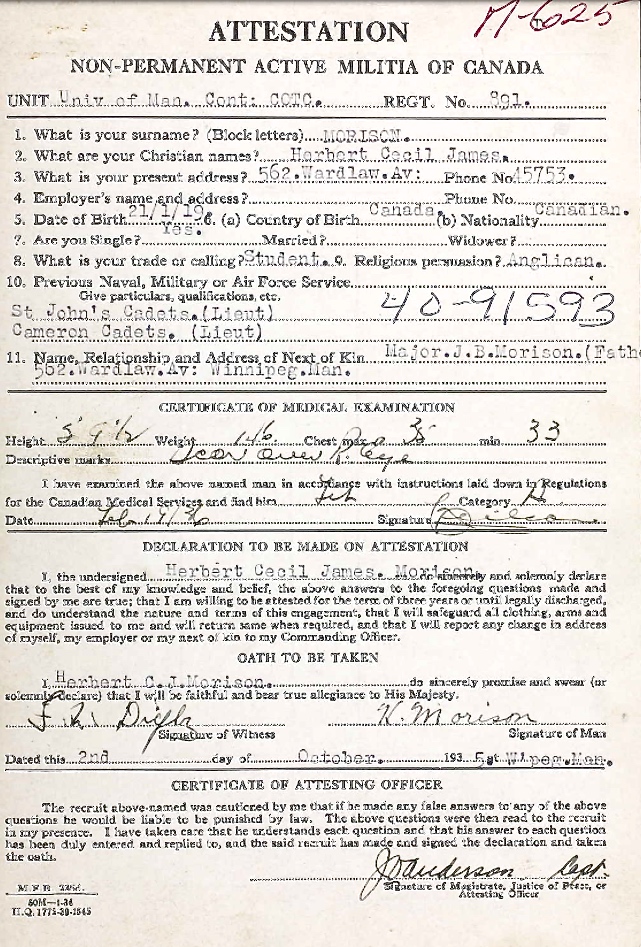 M-625
ATTESTATION
NON-PERMANENT ACTIVE MILITIA OF CANADA
UNIT Univ of Man. Cont: COTC. REGT. No. 891.
1. What is your surname? (Block letters) MORISON.
2. What are your Christian names? Herbert Cecil James.
3. What is your present address? 562.Wardlaw.Av: Phone No 45753.
4. Employer's name and address? Phone No.
5. Date of Birth 21/1/19 6. (a) Country of Birth Canada. (b) Nationality Canadian.
7. Are you Single? Yes. Married? Widower?
8. What is your trade or calling? Student. 9. Religious persuasion? Anglican.
10. Previous Naval, Military or Air Force Service
Give particulars, qualifications, etc. 40-91593
St John's Cadets.(Lieut)
Cameron Cadets. (Lieut)
11. Name, Relationship and Address of Next of Kin Major.J.B.Morison.(Fath
562.Wardlaw.Av: Winnipeg.Man.
CERTIFICATE OF MEDICAL EXAMINATION
Height 5' 9 1/2 Weight 146 Chest max 35 min 33
Descriptive marks Scar over R. eye
I have examined the above named man in accordance with instructions laid down in Regulations
for the Canadian Medical Services and find him Fit Category A
Date Feb Signature
DECLARATION TO BE MADE ON ATTESTATION
I, the undersigned Herbert Cecil James. Morison. do sincerely and solemnly declare
that to the best of my knowledge and belief, the above answers to the foregoing questions made and
signed by me are true; that I am willing to be attested for the term of three years or until legally discharged,
and do understand the nature and terms of this engagement, that I will safeguard all clothing, arms and
equipment issued to me and will return same when required, and that I will report any change in address
of myself, my employer or my next of kin to my Commanding Officer.
OATH TO BE TAKEN
I Herbert C.J.Morison. do sincerely promise and swear (or
solemnly declare) that I will be faithful and bear true allegiance to His Majesty.
H. Morison
Signature of Witness Signature of Man
Dated this 2nd day of October. 193 5 at W'peg.Man.
CERTIFICATE OF ATTESTING OFFICER
The recruit above-named was cautioned by me that if he made any false answers to any of the above
questions he would be liable to be punished by law. The above questions were then read to the recruit
in my presence. I have taken care that he understands each question and that his answer to each question
has been duly entered and replied to, and the said recruit has made and signed the declaration and taken
the oath.
Anderson Capt.
Signature of Magistrate, Justice of Peace, or
Attesting Officer
M.F.B.
50M—1-36
H.Q. 1772-39-1545